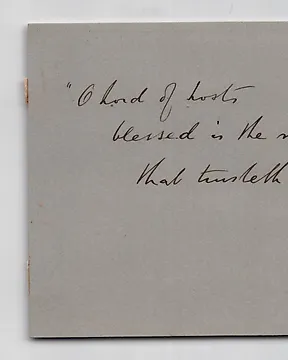 "O Lord of hosts
blessed is the
that trusteth